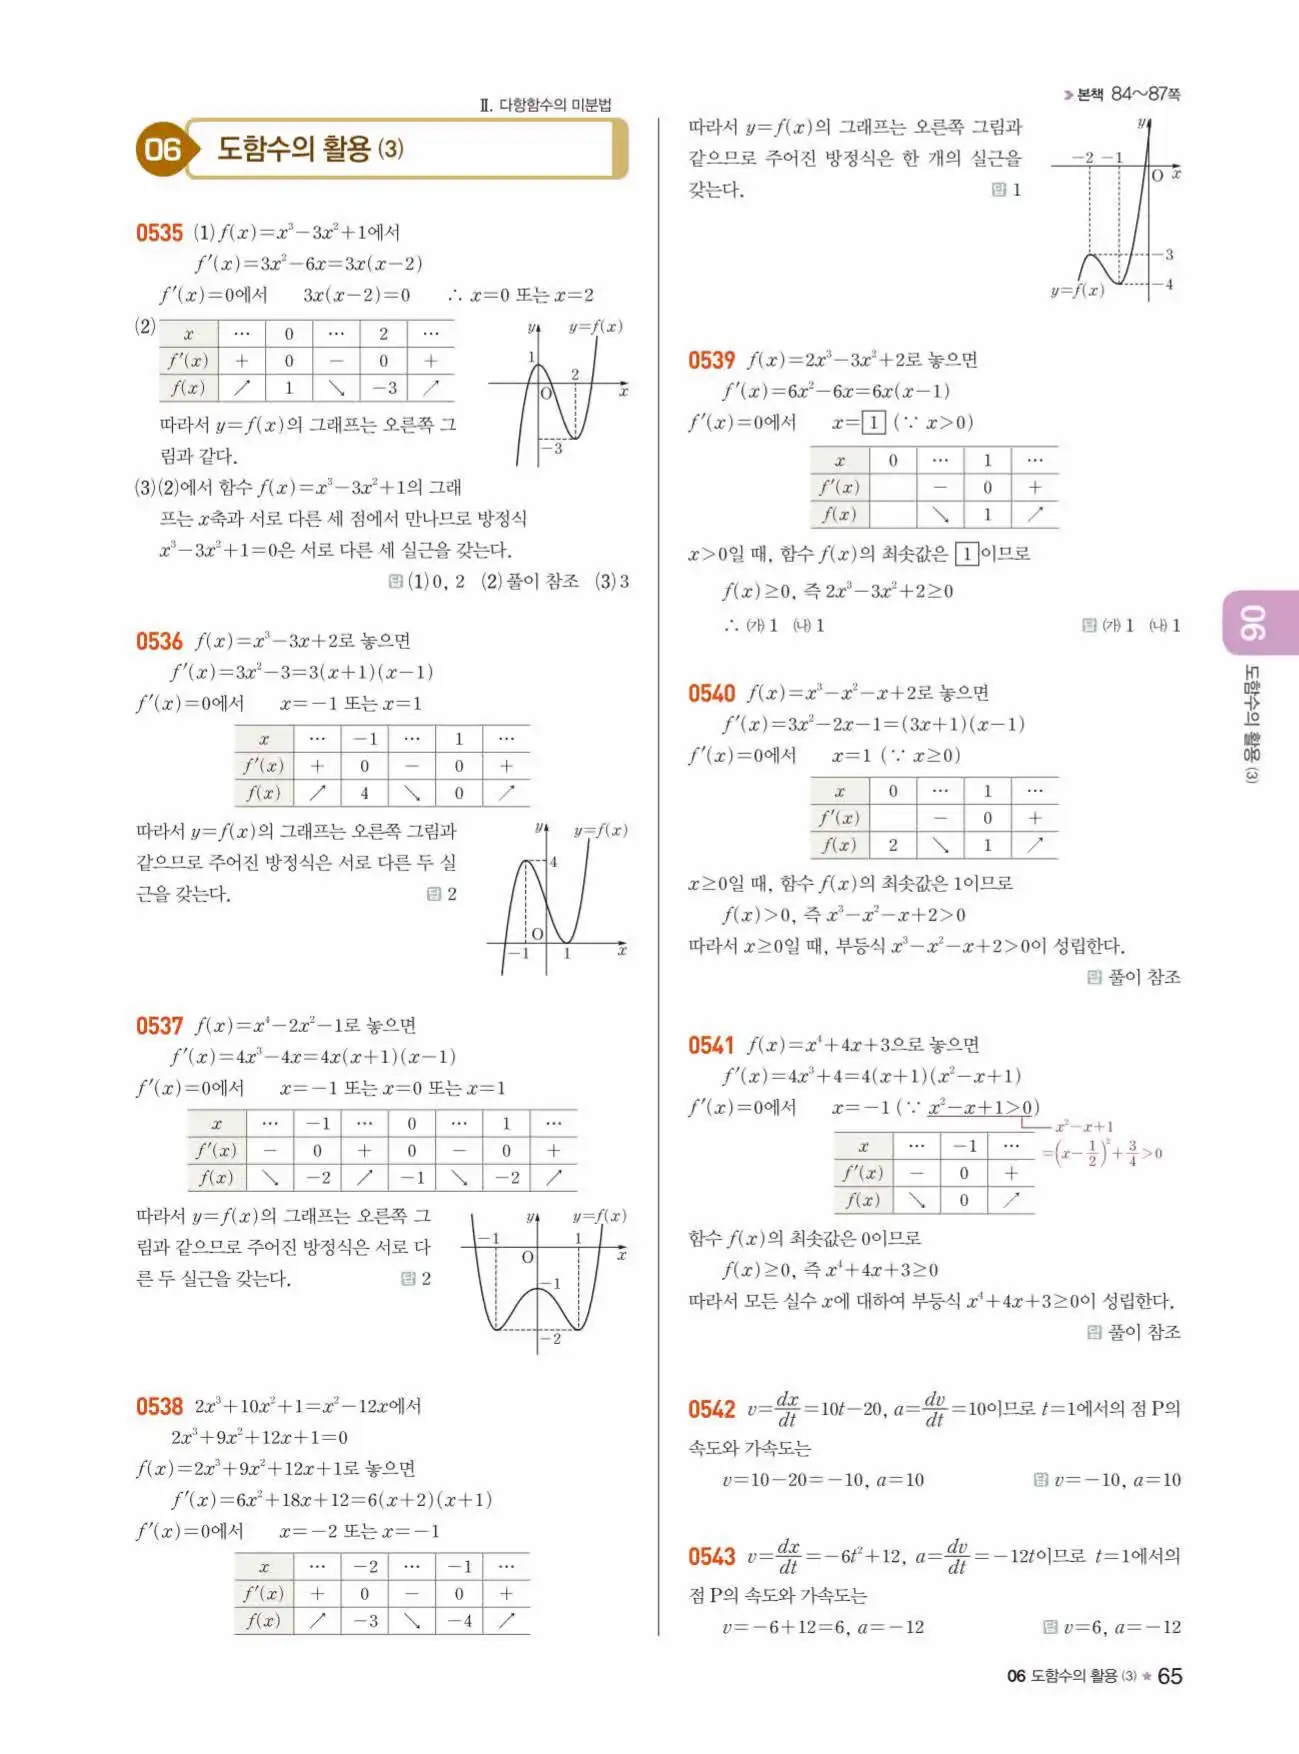 Ⅱ. 다항함수의 미분법
06 도함수의 활용 (3)
0535 (1) f(x)=x³-3x²+1에서
f'(x)=3x²-6x=3x(x-2)
f'(x)=0에서 3x(x-2)=0 ∴ x=0 또는 x=2
(2)
x … 0 … 2 …
f'(x) + 0 - 0 +
f(x) ↗ 1 ↘ -3 ↗
y y=f(x)
1
2
O x
-3
따라서 y=f(x)의 그래프는 오른쪽 그
림과 같다.
(3) (2)에서 함수 f(x)=x³-3x²+1의 그래
프는 x축과 서로 다른 세 점에서 만나므로 방정식
x³-3x²+1=0은 서로 다른 세 실근을 갖는다.
답 (1) 0, 2 (2) 풀이 참조 (3) 3
0536 f(x)=x³-3x+2로 놓으면
f'(x)=3x²-3=3(x+1)(x-1)
f'(x)=0에서 x=-1 또는 x=1
x … -1 … 1 …
f'(x) + 0 - 0 +
f(x) ↗ 4 ↘ 0 ↗
따라서 y=f(x)의 그래프는 오른쪽 그림과
같으므로 주어진 방정식은 서로 다른 두 실
근을 갖는다. 답 2
y y=f(x)
4
O
-1 1 x
0537 f(x)=x⁴-2x²-1로 놓으면
f'(x)=4x³-4x=4x(x+1)(x-1)
f'(x)=0에서 x=-1 또는 x=0 또는 x=1
x … -1 … 0 … 1 …
f'(x) - 0 + 0 - 0 +
f(x) ↘ -2 ↗ -1 ↘ -2 ↗
따라서 y=f(x)의 그래프는 오른쪽 그
림과 같으므로 주어진 방정식은 서로 다
른 두 실근을 갖는다. 답 2
y y=f(x)
-1 1
O x
-1
-2
0538 2x³+10x²+1=x²-12x에서
2x³+9x²+12x+1=0
f(x)=2x³+9x²+12x+1로 놓으면
f'(x)=6x²+18x+12=6(x+2)(x+1)
f'(x)=0에서 x=-2 또는 x=-1
x … -2 … -1 …
f'(x) + 0 - 0 +
f(x) ↗ -3 ↘ -4 ↗
본책 84~87쪽
따라서 y=f(x)의 그래프는 오른쪽 그림과
같으므로 주어진 방정식은 한 개의 실근을
갖는다. 답 1
y
-2 -1
O x
-3
y=f(x) -4
0539 f(x)=2x³-3x²+2로 놓으면
f'(x)=6x²-6x=6x(x-1)
f'(x)=0에서 x=1 (∵ x>0)
x 0 … 1 …
f'(x) - 0 +
f(x) ↘ 1 ↗
x>0일 때, 함수 f(x)의 최솟값은 1이므로
f(x)≥0, 즉 2x³-3x²+2≥0
∴ ㈎ 1 ㈏ 1 답 ㈎ 1 ㈏ 1
0540 f(x)=x³-x²-x+2로 놓으면
f'(x)=3x²-2x-1=(3x+1)(x-1)
f'(x)=0에서 x=1 (∵ x≥0)
x 0 … 1 …
f'(x) - 0 +
f(x) 2 ↘ 1 ↗
x≥0일 때, 함수 f(x)의 최솟값은 1이므로
f(x)>0, 즉 x³-x²-x+2>0
따라서 x≥0일 때, 부등식 x³-x²-x+2>0이 성립한다.
답 풀이 참조
0541 f(x)=x⁴+4x+3으로 놓으면
f'(x)=4x³+4=4(x+1)(x²-x+1)
f'(x)=0에서 x=-1 (∵ x²-x+1>0)
x²-x+1
=(x-1/2)²+3/4>0
x … -1 …
f'(x) - 0 +
f(x) ↘ 0 ↗
함수 f(x)의 최솟값은 0이므로
f(x)≥0, 즉 x⁴+4x+3≥0
따라서 모든 실수 x에 대하여 부등식 x⁴+4x+3≥0이 성립한다.
답 풀이 참조
0542 v=dx/dt=10t-20, a=dv/dt=10이므로 t=1에서의 점 P의
속도와 가속도는
v=10-20=-10, a=10 답 v=-10, a=10
0543 v=dx/dt=-6t²+12, a=dv/dt=-12t이므로 t=1에서의
점 P의 속도와 가속도는
v=-6+12=6, a=-12 답 v=6, a=-12
06
도함수의 활용 (3)
06 도함수의 활용 (3) ★ 65